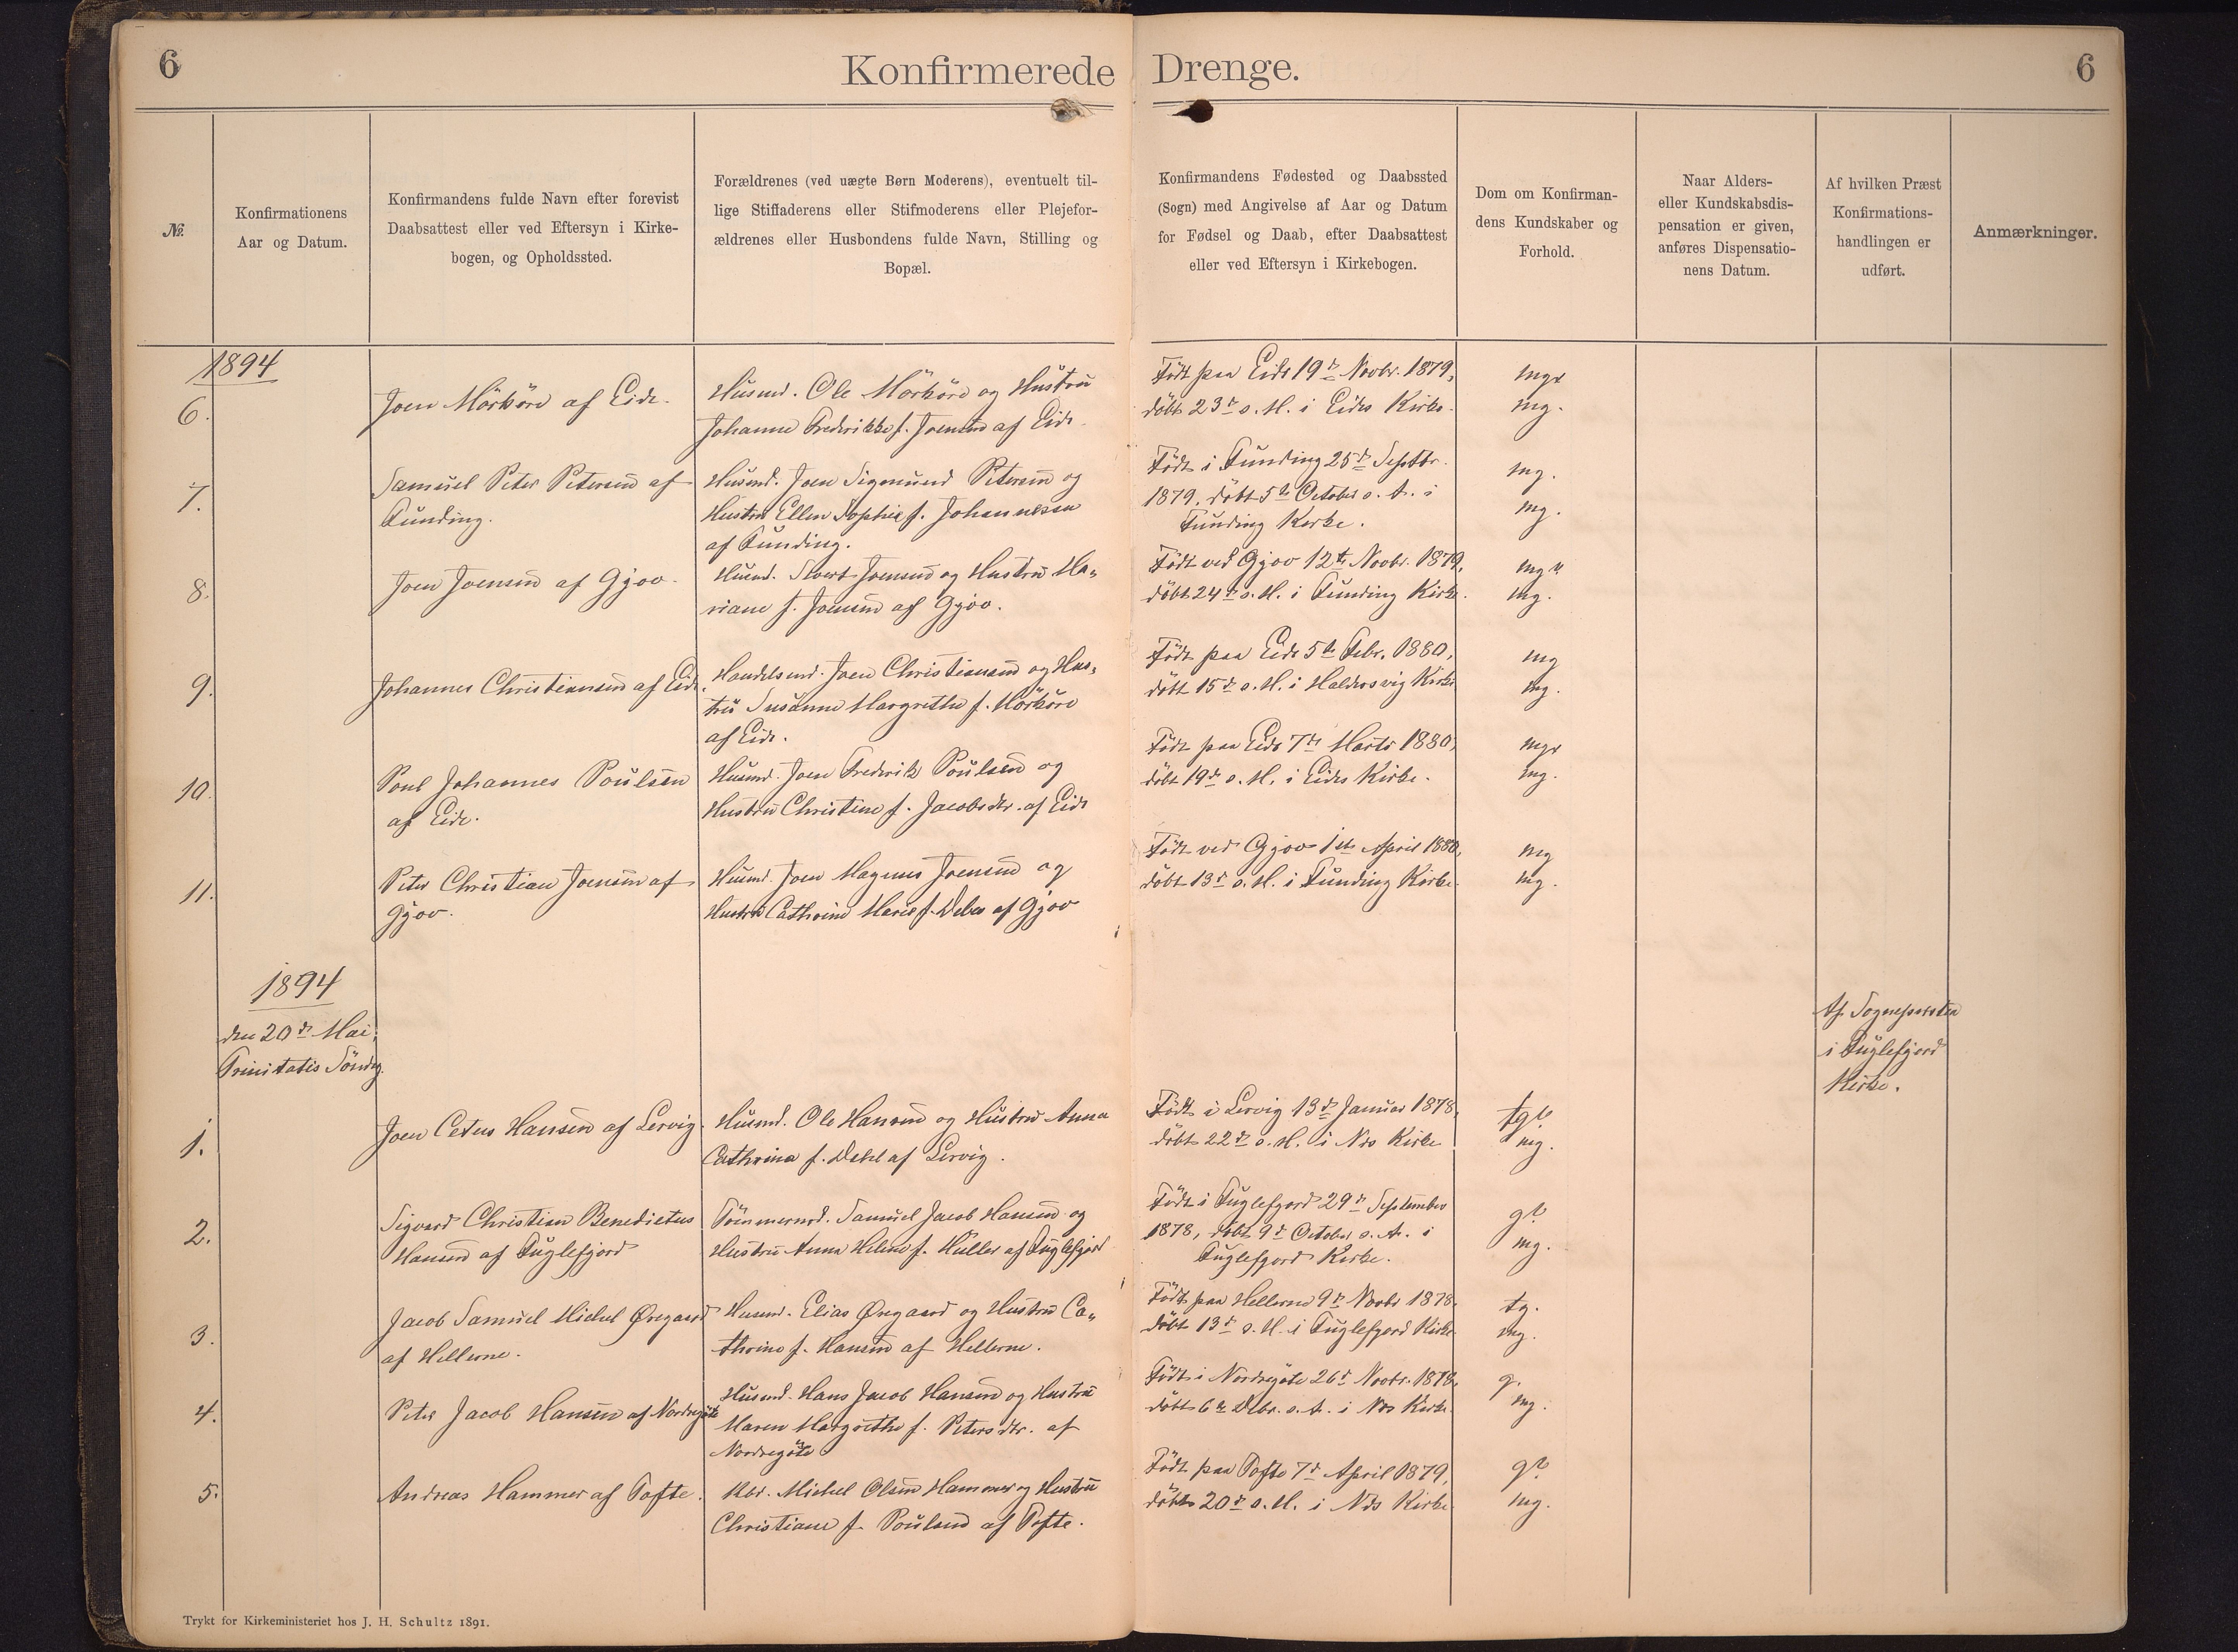 6
Konfirmerede Drenge.
6
№.
Konfirmationens
Aar og Datum.
Konfirmandens fulde Navn efter forevist
Daabsattest eller ved Eftersyn i Kirke-
bogen, og Opholdssted.
Forældrenes (ved uægte Børn Moderens), eventuelt til-
lige Stiffaderens eller Stifmoderens eller Plejefor-
ældrenes eller Husbondens fulde Navn, Stilling og
Bopæl.
Konfirmandens Fødested og Daabssted
(Sogn) med Angivelse af Aar og Datum
for Fødsel og Daab, efter Daabsattest
eller ved Eftersyn i Kirkebogen.
Dom om Konfirman-
dens Kundskaber og
Forhold.
Naar Alders-
eller Kundskabsdis-
pensation er given,
anføres Dispensatio-
nens Datum.
Af hvilken Præst
Konfirmations-
handlingen er
udført.
Anmærkninger.
1894
6.
Joen Mörköre af Eide.
Husmd. Ole Mörköre og Hustru
Johanne Frederikke f. Joensen af Eide.
Født paa Eide 19de Novbr. 1879,
döbt 23de s. M. i Eides Kirke.
mg.
7.
Samuel Peter Petersen af
Funding.
Husmd. Joen Sigmund Petersen og
Hustru Ellen Sophie f. Johannesen
af Funding.
Födt i Funding 25de Septbr.
1879, döbt 5te October s. A. i
Funding Kirke.
mg.
mg.
8.
Joen Joensen af Gjov.
Husmd. Sivert Joensen og Hustru Ma-
riane f. Joensen af Gjov.
Födt ved Gjov 12te Novbr. 1879,
döbt 24de s. M. i Funding Kirke.
mg.
9.
Johannes Christiansen af Eide.
Handelsmd. Joen Christiansen og Hus-
tru Susanne Margrethe f. Mörköre
af Eide.
Födt paa Eide 5te Febr. 1880,
döbt 15de s. M. i Haldersvig Kirke
mg
mg.
10.
Poul Johannes Poulsen
af Eide.
Husmd. Joen Frederik Poulsen og
Hustru Christine f. Jacobsdtr. af Eide
Födt paa Eide 7de Marts 1880,
döbt 19de s. M. i Eides Kirke.
mg.
11.
Peter Christian Joensen af
Gjov.
Husmd. Joen Magnus Joensen og
Hustru Cathrine Marie f. Debes af Gjov
Födt ved Gjov 1ste April 1880,
döbt 13de s. M. i Funding Kirke.
mg
mg.
1894
den 20de Mai,
Trinitatis Söndag.
Af Sognepræsten
i Fuglefjord
Kirke.
1.
Joen Cetus Hansen af Lervig.
Husmd. Ole Hansen og Hustru Anna
Cathrina f. Dahl af Lervig.
Födt i Lervig 13de Januar 1878,
döbt 22de s. M. i Næs Kirke
mg.
2.
Sigvard Christian Benedictus
Hansen af Fuglefjord
Tömmermd. Samuel Jacob Hansen og
Hustru Anna Helene f. Müller af Fuglefjord
Födt i Fuglefjord 29de September
1878, döbt 9de October s. A. i
Fuglefjord Kirke.
mg.
3.
Jacob Samuel Michel Øregaard
af Hellerne.
Husmd. Elias Øregaard og Hustru Ca-
thrine f. Hansen af Hellerne.
Födt paa Hellerne 9de Novbr 1878,
döbt 13de s. M. i Fuglefjord Kirke.
tg.
mg.
4.
Peter Jacob Hansen af Nordregöte
Husmd. Hans Jacob Hansen og Hustru
Maren Margrethe f. Petersdtr. af
Nordregöte
Födt i Nordregöte 26de Novbr. 1878,
döbt 6te Debr. s. A. i Næs Kirke.
g.
mg.
5.
Andreas Hammer af Tofte.
Kbr. Michel Olsen Hammer og Hustru
Christiane f. Poulsen af Tofte.
Födt paa Tofte 7de April 1879,
döbt 20de s. M. i Næs Kirke
mg.
Trykt for Kirkeministeriet hos J. H. Schultz 1891.